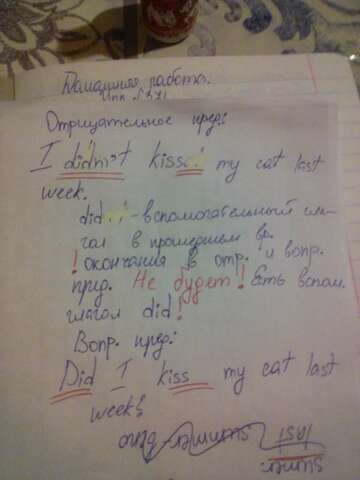 Домашняя работа.
Отрицательное пред:
I didn't kiss! my cat last
week.
did - вспомогательный гла-
гол в прошедшем вр.
! окончания в отр. и вопр.
пред. Не будет! Есть вспом.
глагол did!
Вопр. пред:
Did I kiss my cat last
week?
summer
last